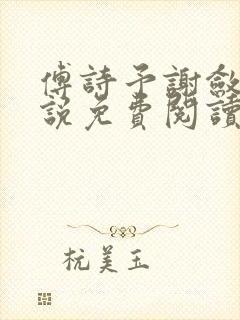 傅詩予謝斂
說免費閱讀
杭美玉